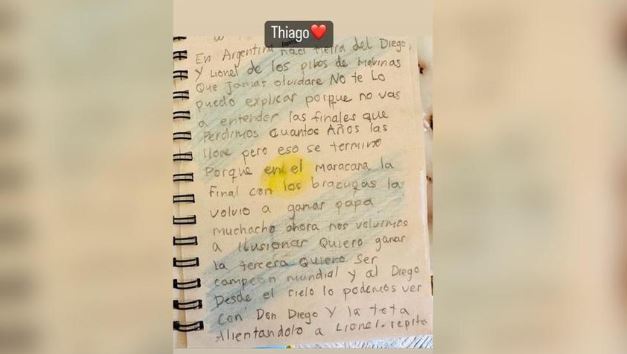 Thiago❤️
En Argentina naci tierra del Diego,
Y Lionel de los pibes de Malvinas
Que Jamas olvidare No te Lo
puedo explicar porque no vas
a entender las finales que
Perdimos Cuantos Años las
llore pero eso se termino
Porque en el maracana la
Final con los brazucas la
volvio a ganar papá
muchacho ahora nos volvimos
a ilusionar Quiero ganar
la tercera Quiero Ser
campeon mundial y al Diego
Desde el cielo lo podemos ver
con Don Diego Y la tota
Alientandolo a Lionel. repite